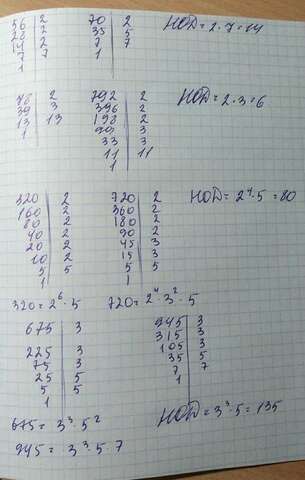 56 | 2 70 | 2 НОД = 2 · 7 = 14
28 | 2 35 | 5
14 | 2 7 | 7
7 | 7 1
1
78 | 2 792 | 2 НОД = 2 · 3 = 6
39 | 3 396 | 2
13 | 13 198 | 2
1 99 | 3
33 | 3
11 | 11
1
320 | 2 720 | 2 НОД = 2⁴ · 5 = 80
160 | 2 360 | 2
80 | 2 180 | 2
40 | 2 90 | 2
20 | 2 45 | 3
10 | 2 15 | 3
5 | 5 5 | 5
1 1
320 = 2⁶ · 5 720 = 2⁴ · 3² · 5
675 | 3 945 | 3
225 | 3 315 | 3
75 | 3 105 | 3
25 | 5 35 | 5
5 | 5 7 | 7
1 1
675 = 3³ · 5² НОД = 3³ · 5 = 135
945 = 3³ · 5 · 7